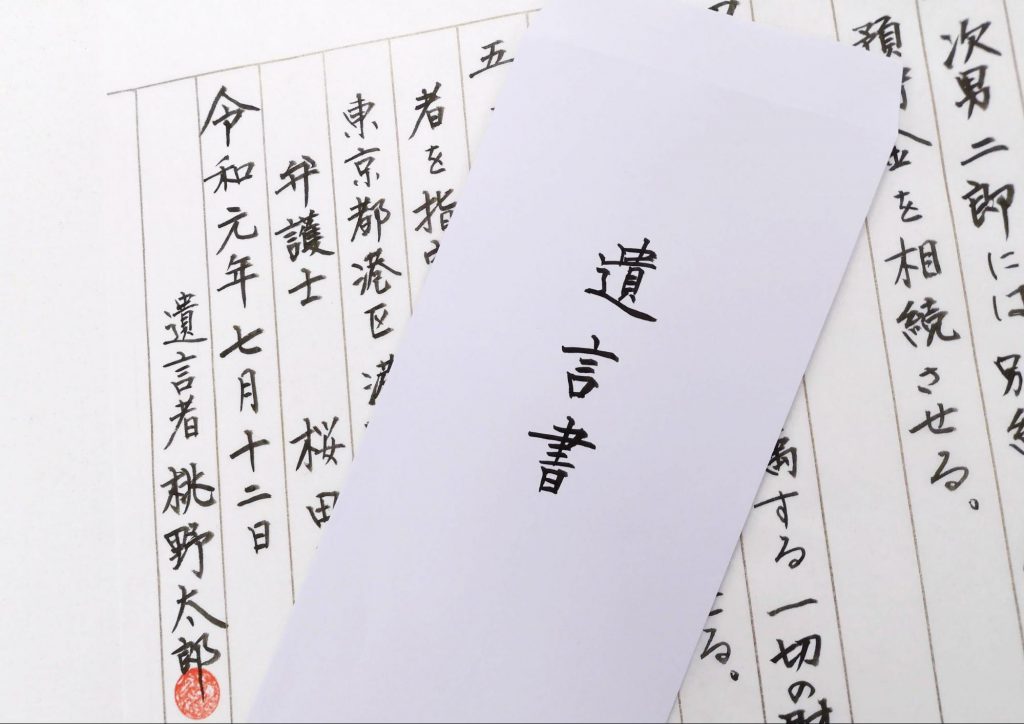 次男二郎には別
預貯金を相続させる。
属する一切の財
る。
五
者を指
東京都港区
弁護士 桜田
令和元年七月十二日
遺言者 桃野太郎
遺言書